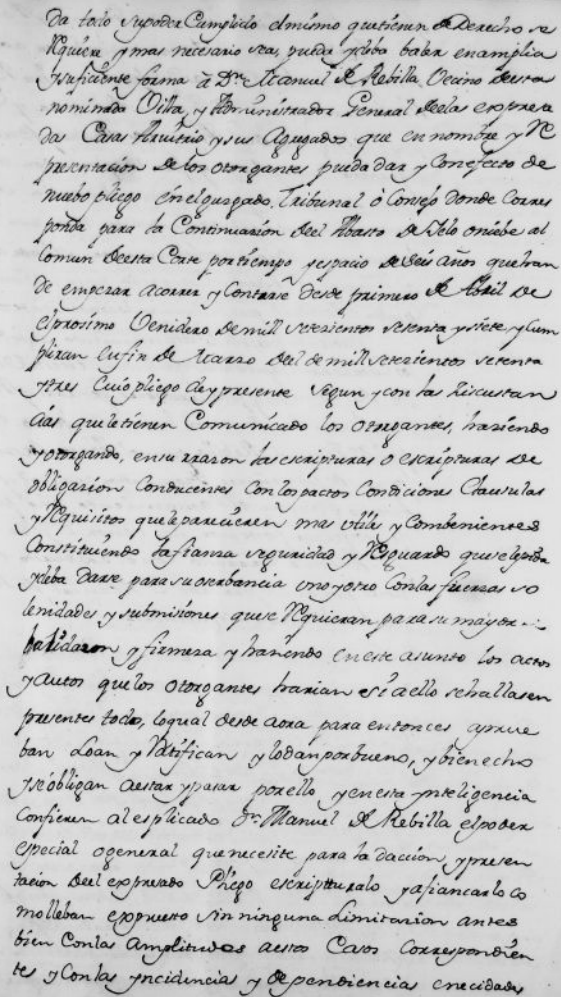 Da todo supoder Cumplido elmismo quetienen de Derecho se
Requiere y mas necesario sea, pueda ydeba baler en amplia
y suficiente forma â Dn. Manuel de Rebilla Vecino deesta
nominada Villa, y Administrador General deelas expresa
das Casas Arvitrio y sus Agregados que en nombre y Re
presentacion de los otorgantes pueda dar y Con efecto de
nuebo pliego én el juzgado, Tribunal ò Consejo donde Corres
ponda para la Continuazion deel Abasto de Yelo oniebe al
Comun deesta Corte por tiempo y espacio de seis años que han
de empezar acorrer y Contarse desde primero de Abril de
el prosimo Venidero de mill setezientos setenta y siete, y Cum
pliran en fin de Marzo deel de mill setezientos setenta
y tres Cuio pliego de y presente segun y con las zircustan
cias que le tienen Comunicado los otorgantes, haziendo
y otorgando, en su rrazon las escripturas o escripturas de
obligazion Conducentes Con los pactos Condiciones Clausulas
y Requisitos que le parecieren mas utiles y Combenientes
Constituiendo la fianza seguridad y Resguardo que se le pida
y deba Darse para su oserbancia uno y otro Con las fuerzas so
lenidades y submisiones que se Requieran para su mayor
balidazon y firmeza y haziendo en este asunto los actos
y autos que los otorgantes harian si a ello se hallasen
presentes todo, lo qual desde aora para entonces aprue
ban Loan y Ratifican y lo dan por bueno, y bien echo
y se obligan a estar y pasar por ello y en esta ynteligencia
Confieren al esplicado Dn. Manuel de Rebilla el poder
especial o general que necesite para la daccion, y presen
tacion deel expresado Pliego escripturalo y afiancarlo co
mo lleban expuesto sin ninguna Limitazion antes
bien Con las Amplitudes a estos Casos Correspondien
tes y Con las yncidencias y dependiencias enecidades